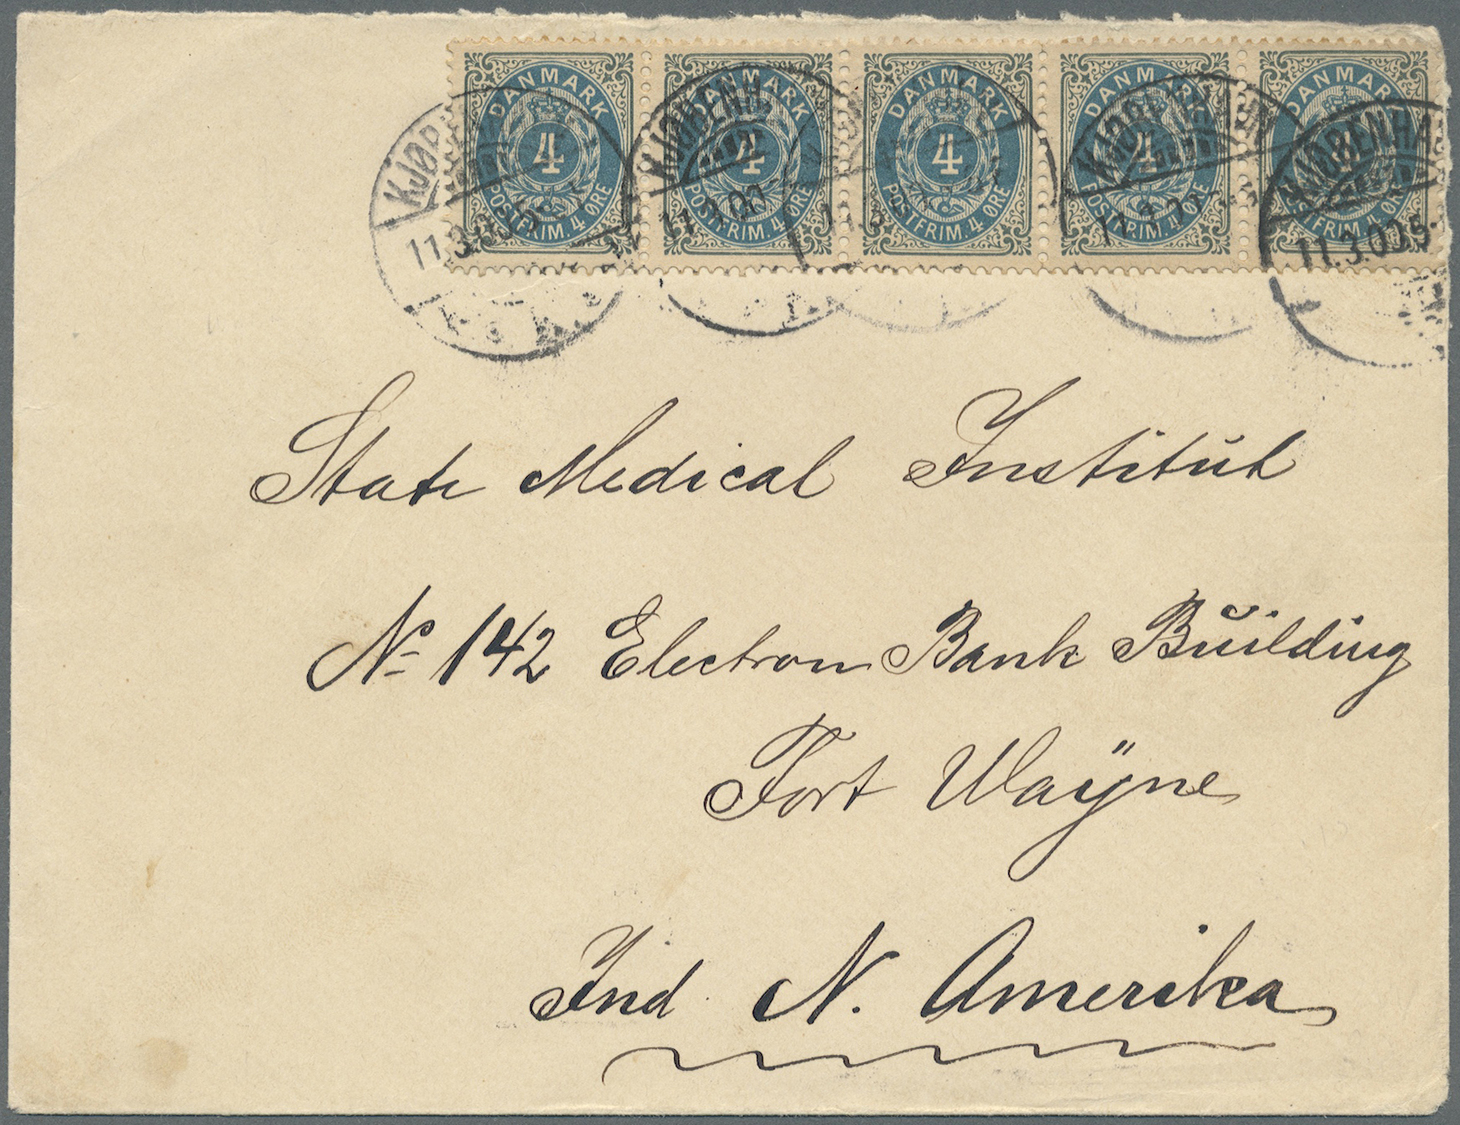 DANMARK 4 POSTFRIM. 4 ØRE
DANMARK 4 POSTFRIM. 4 ØRE
DANMARK 4 POSTFRIM. 4 ØRE
DANMARK 4 POSTFRIM. 4 ØRE
DANMARK
KJØBENH
KJØBENHAVN
KJØBENHA
11.3.00
11.3.00
State Medical Institut
No 142 Electron Bank Building
Fort Wayne
Ind. N. Amerika